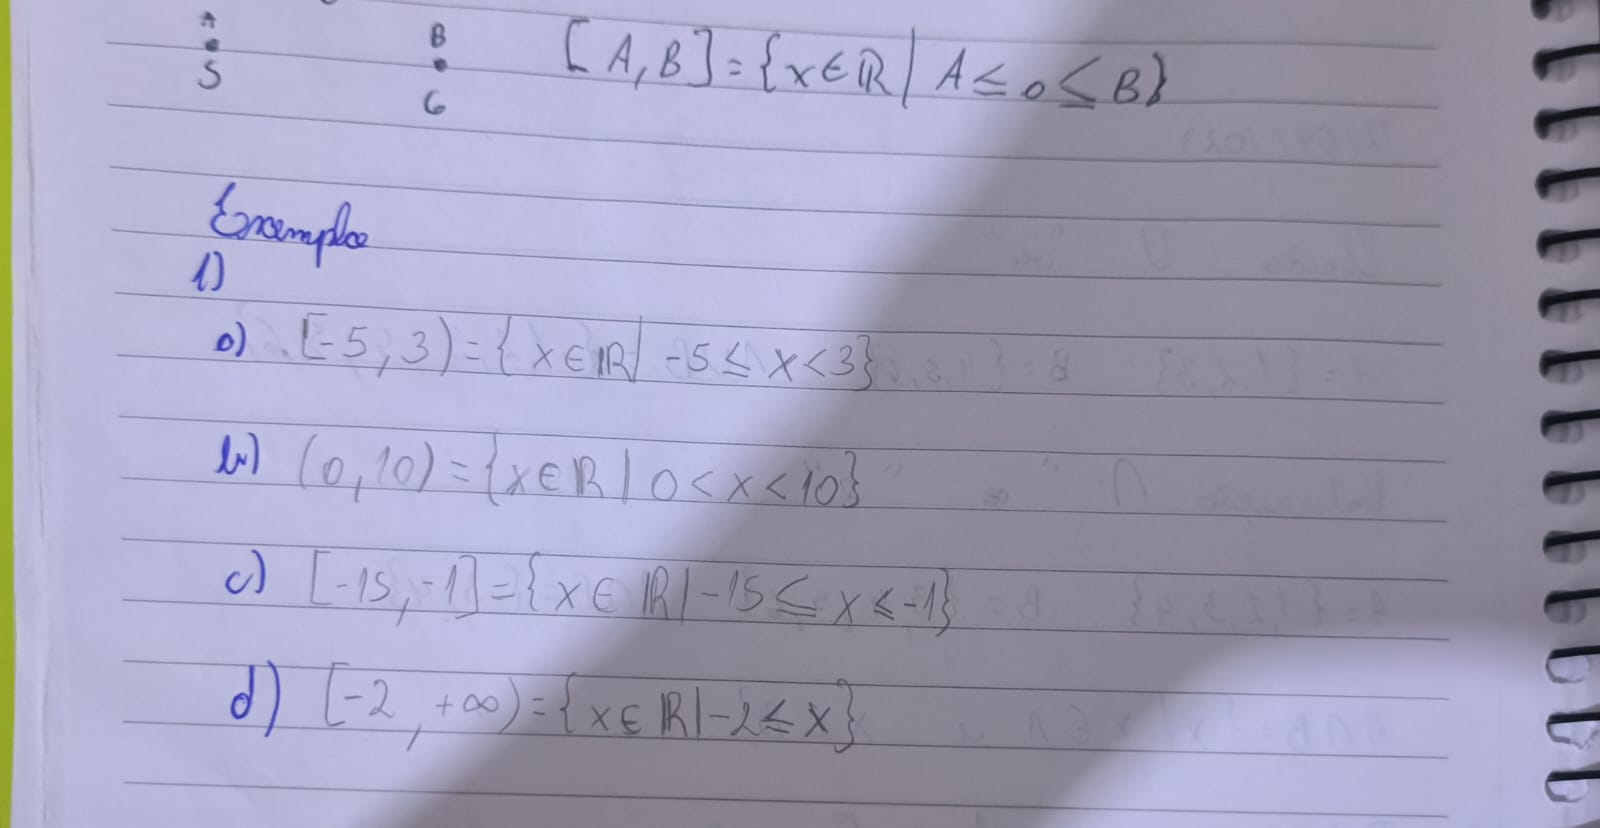 A B [A,B]={x∈ℝ| A≤0≤B}
5 6
Exemplo
1)
a) [-5,3)={x∈ℝ| -5≤x<3}
b) (0,10)={x∈ℝ| 0<x<10}
c) [-15,-1]={x∈ℝ|-15≤x≤-1}
d) [-2,+∞)={x∈ℝ|-2≤x}